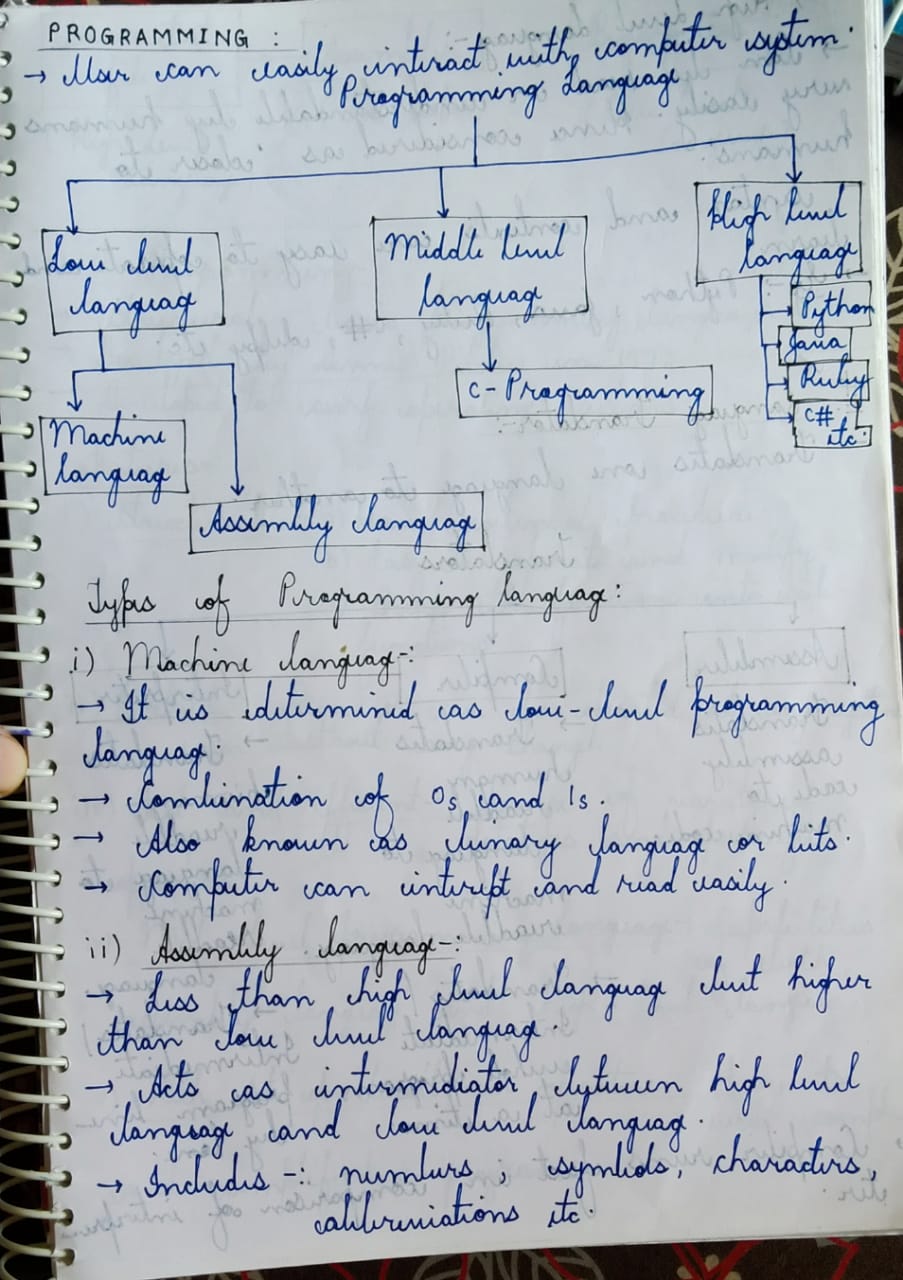 PROGRAMMING :
→ User can easily interact with computer system.
Programming Language
Low level
language
Middle level
language
High level
language
Python
Java
Ruby
C#
etc.
C-Programming
Machine
language
Assembly language
Types of Programming language:
i) Machine language-:
→ It is determined as low-level programming
language.
→ Combination of 0s and 1s.
→ Also known as bunary language or bits.
→ Computer can interept and read easily.
ii) Assembly language-:
→ Less than high level language but higher
than low level language.
→ Acts as intermidiator between high level
language and low level language.
→ Includes -: numbers, symbols, characters,
abbreviations etc.